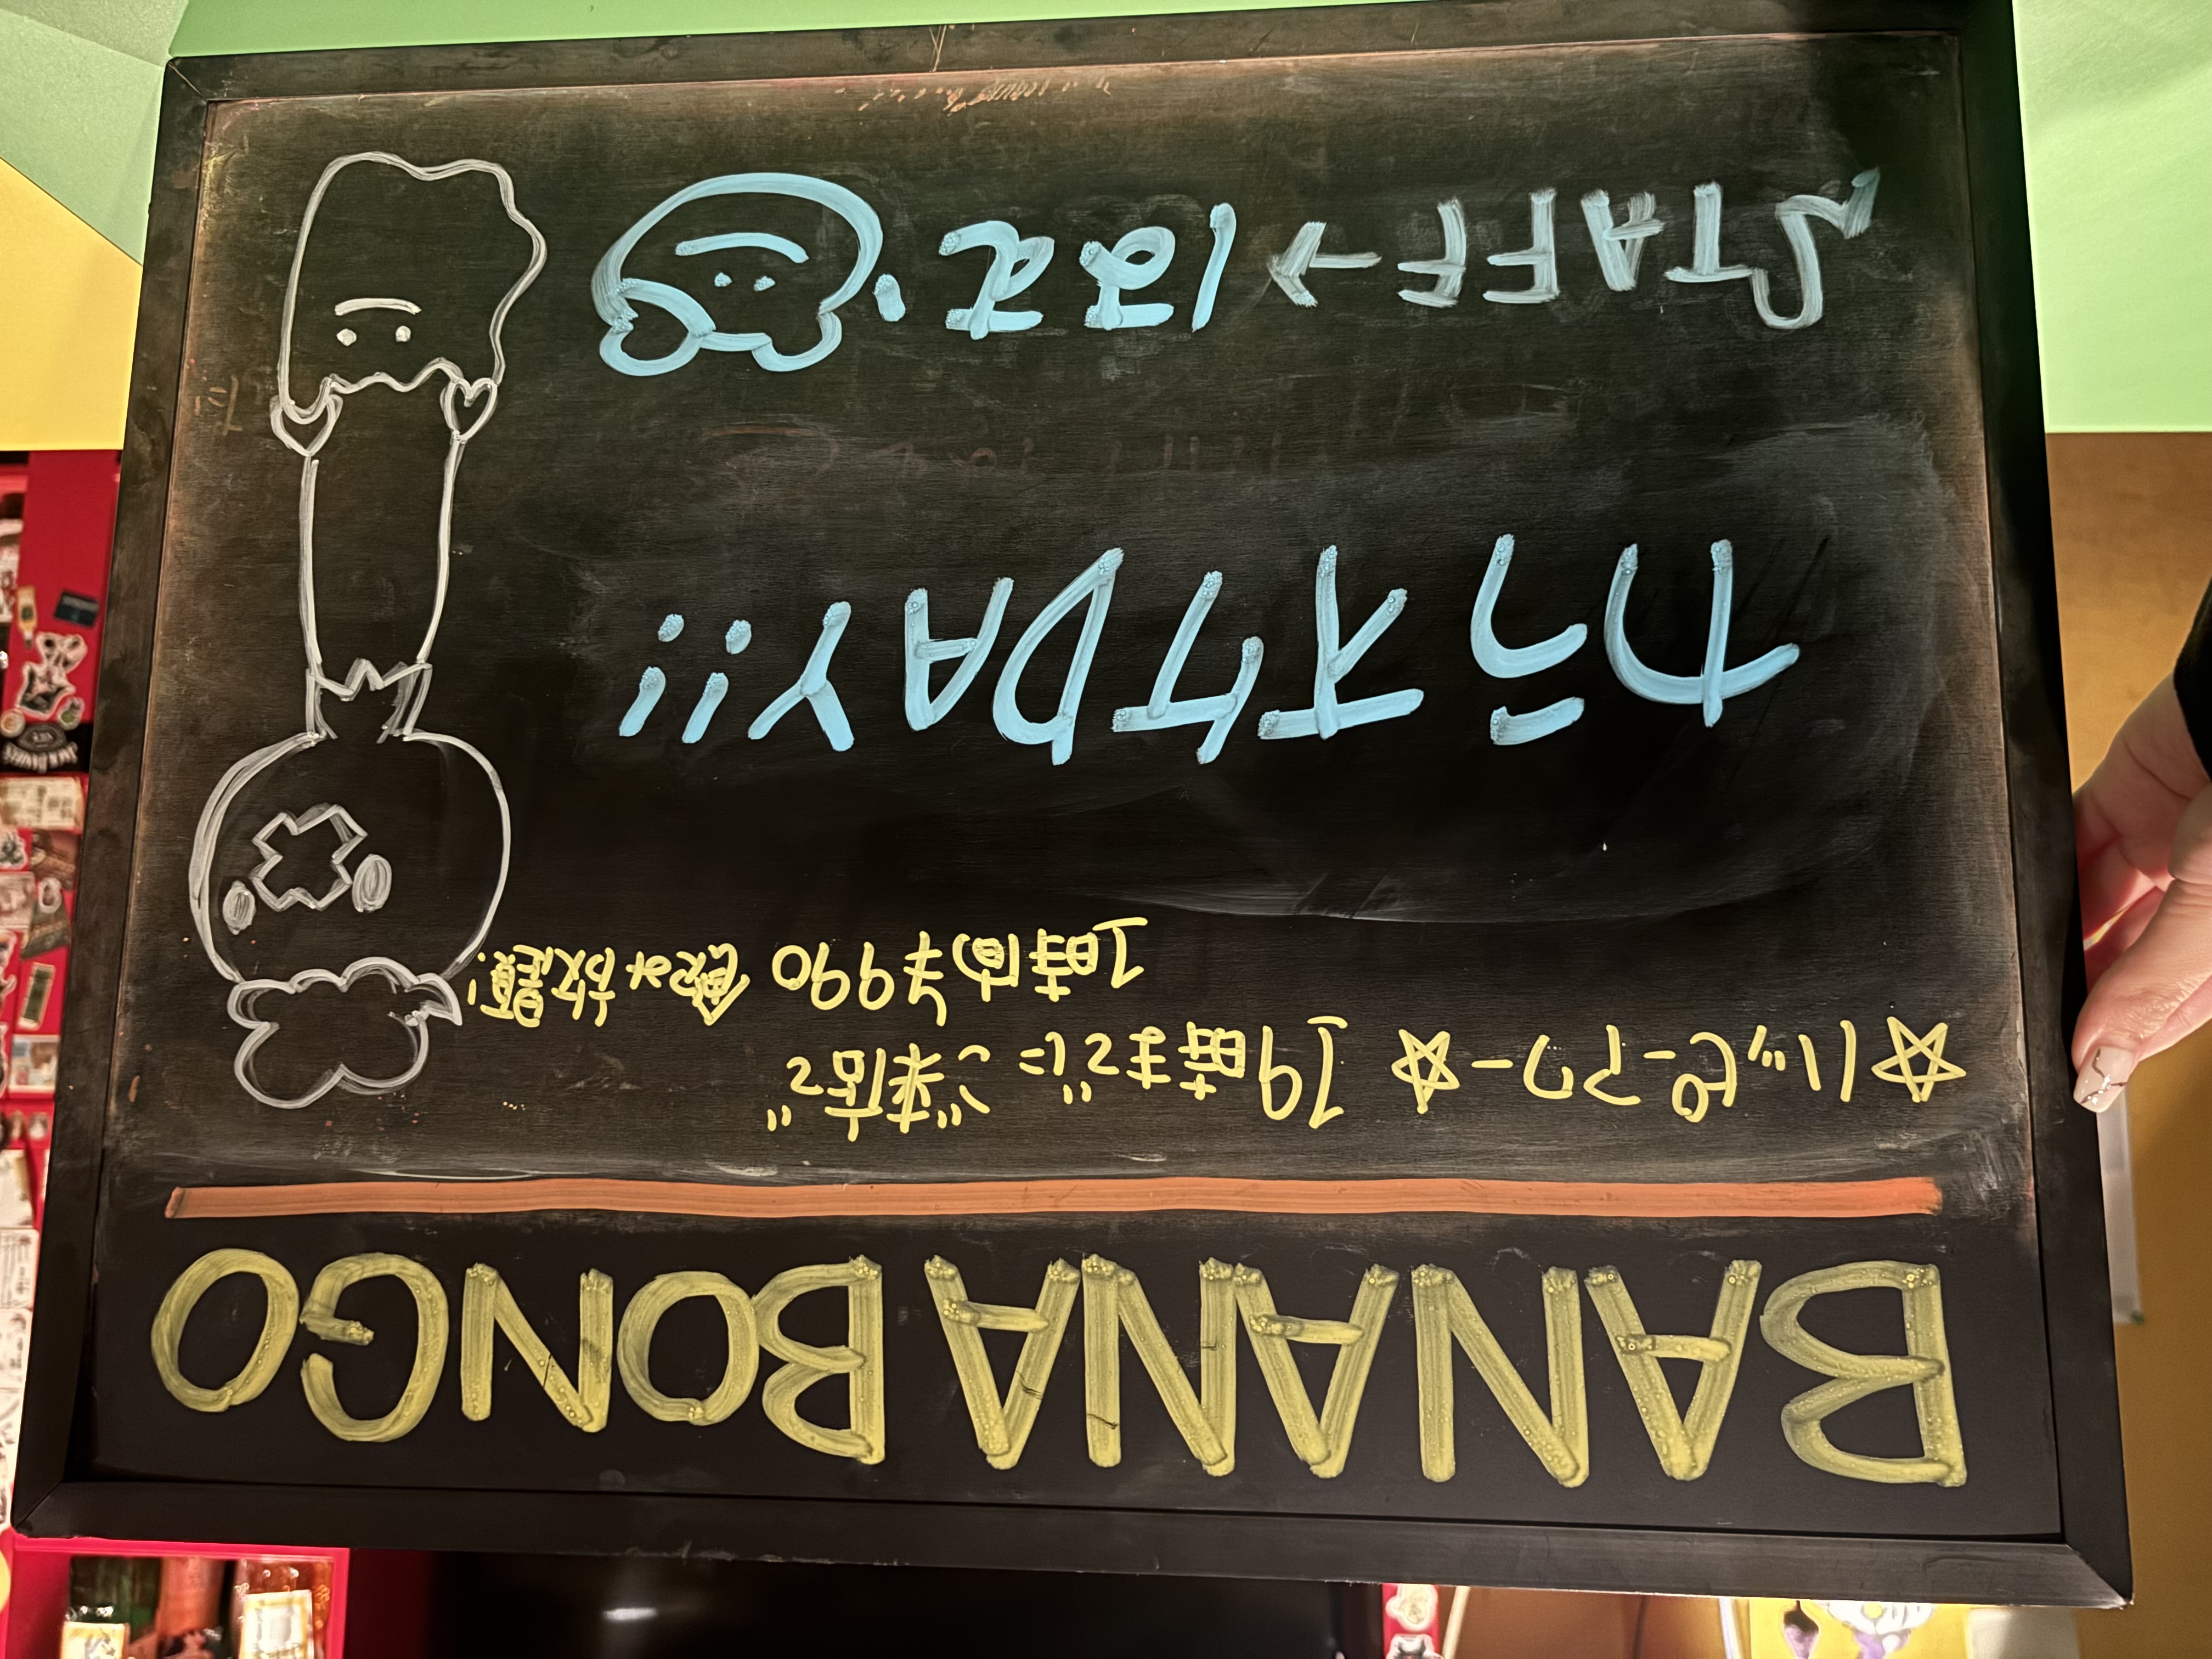 BANANA BONGO
☆ハッピーアワー☆ 19時までにご来店で
1時間¥990 飲み放題!
カラオケDAY!!
STAFF→